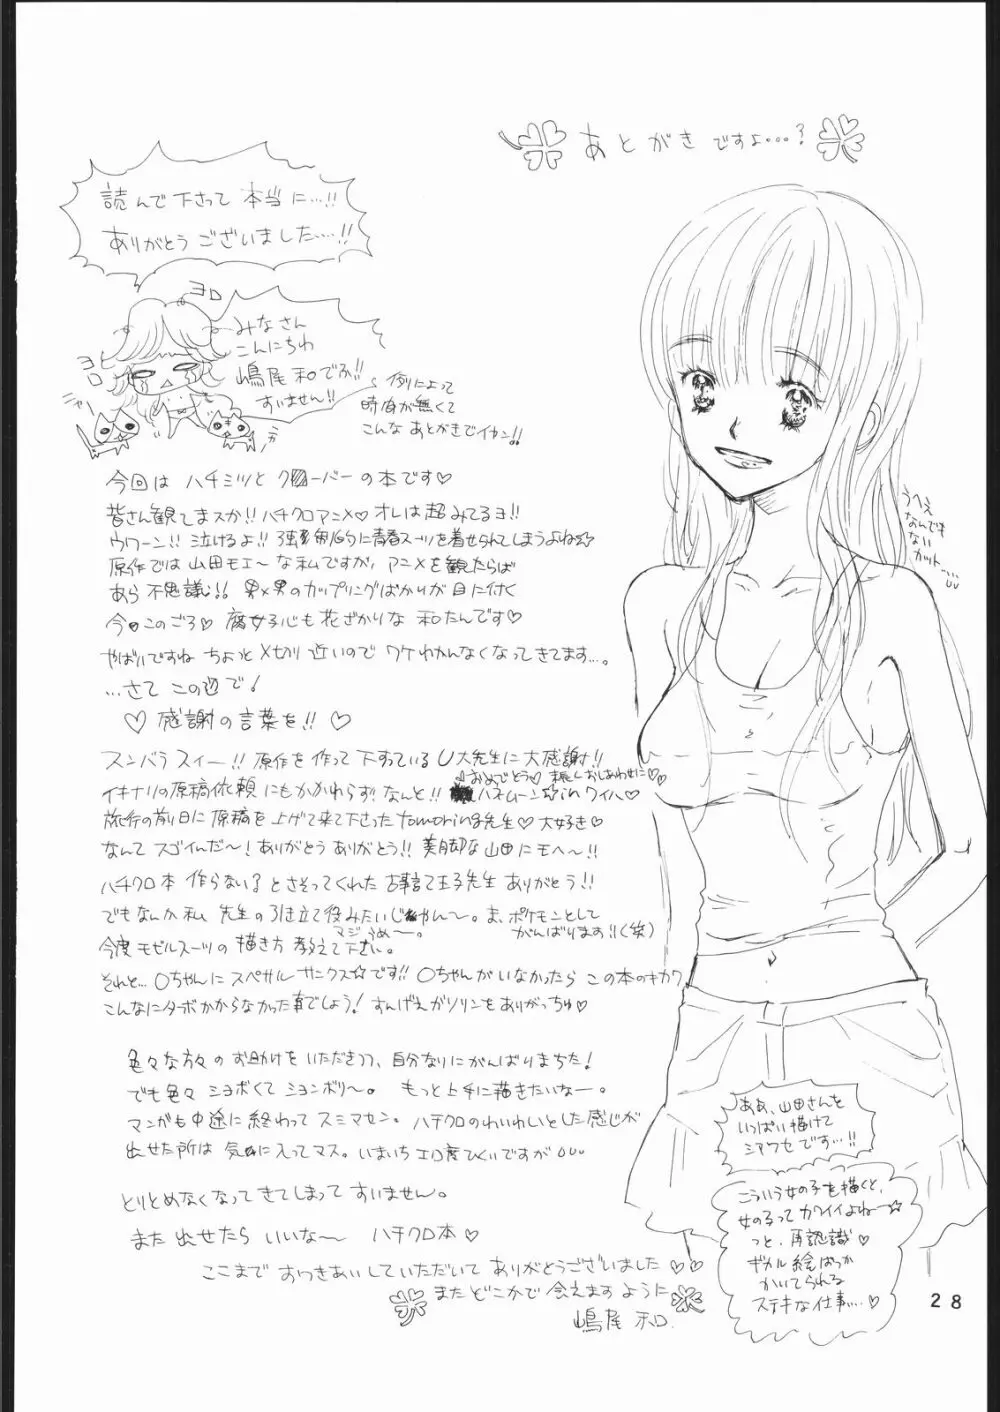 あとがきですよ…?
読んで下さって本当に…!!
ありがとうございました…!!
ヨロ
ヨロ
ニャー
みなさん
こんにちわ
嶋尾和でふ!!
すいません!!
例によって
時間が無くて
こんなあとがきでイカン!!
今回はハチミツとクローバーの本です♡
皆さん観てまスか!!ハチクロアニメ♡オレは超みてるヨ!!
ウワーン!!泣けるよ!!強制的に青春スーツを着せられてしまうよね☆
原作では山田モエ〜な私ですが、アニメを観たらば
あら不思議!!男×男のカップリングばかりが目に付く
今日このごろ♡腐女子心も花ざかりな和たんです♡
やばいですねちょっと〆切り近いのでワケわかんなくなってきてます…。
…さてこの辺で!
♡感謝の言葉を!!♡
スンバラスィー!!原作を作って下すっているU大先生に大感謝!!
おめでとう♡末長くおしあわせに♡♡
イキナリの原稿依頼にもかかわらず!なんと!!ハネムーン☆inハワイ♡
旅行の前日に原稿を上げて来て下さったtomoring先生♡大好き♡
なんてスゴイんだ〜!ありがとうありがとう!!美脚な山田にモヘ〜!!
ハチクロ本作らない?とさそってくれた古事記王子先生ありがとう!!
でもなんか私先生の引き立て役みたいじゃん〜。ま、ポケモンとして
がんばります!!(笑)
マジうめ〜。
今度モビルスーツの描き方教えて下さい。
それと…Oちゃんにスペサルサンクス☆です!!Oちゃんがいなかったらこの本のキカク
こんなにターボかからなかった事でしょう!すんげえガソリンをありがっちゅ♡
色々な方々のお助けをいただきつつ、自分なりにがんばりまちた!
でも色々ショボくてションボリ〜。もっと上手に描きたいなー。
マンガも中途に終わってスミマセン。ハチクロのわいわいとした感じが
出せた所は気に入ってマス。いまいちエロ度ひくいですが
とりとめなくなってきてしまってすいません。
また出せたらいいな〜ハチクロ本♡
ここまでおつきあいしていただいてありがとうございました♡♡
またどこかで会えますように
嶋尾和.
うへえ
なんでも
ない
カット…
ああ、山田さんを
いっぱい描けて
シアワセです…!!
こういう女の子を描くと、
女の子ってカワイイよねー☆
っと、再認識♡
ギカル絵ばっか
かいてられる
ステキな仕事…♡
28